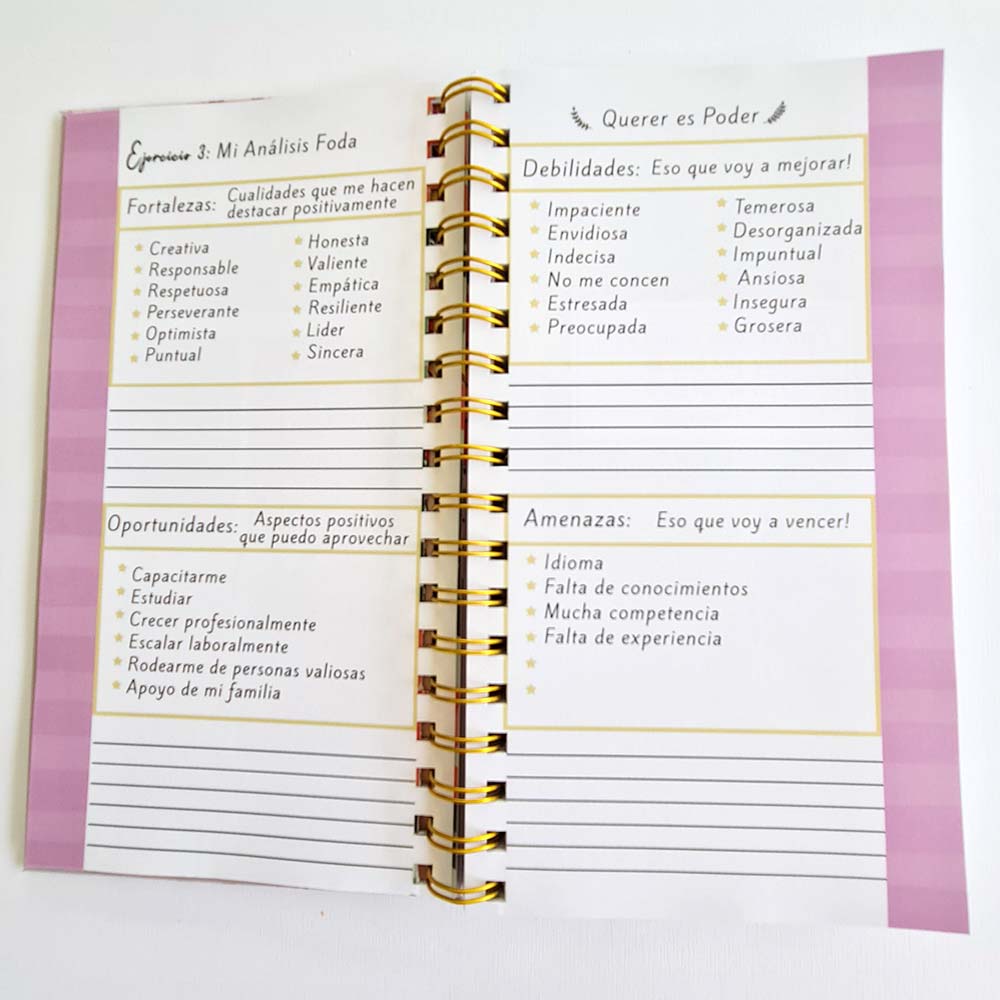 Ejercicio 3: Mi Análisis Foda
Fortalezas: Cualidades que me hacen
destacar positivamente
Creativa
Responsable
Respetuosa
Perseverante
Optimista
Puntual
Honesta
Valiente
Empática
Resiliente
Lider
Sincera
Oportunidades: Aspectos positivos
que puedo aprovechar
Capacitarme
Estudiar
Crecer profesionalmente
Escalar laboralmente
Rodearme de personas valiosas
Apoyo de mi familia
Querer es Poder
Debilidades: Eso que voy a mejorar!
Impaciente
Envidiosa
Indecisa
No me concen
Estresada
Preocupada
Temerosa
Desorganizada
Impuntual
Ansiosa
Insegura
Grosera
Amenazas: Eso que voy a vencer!
Idioma
Falta de conocimientos
Mucha competencia
Falta de experiencia